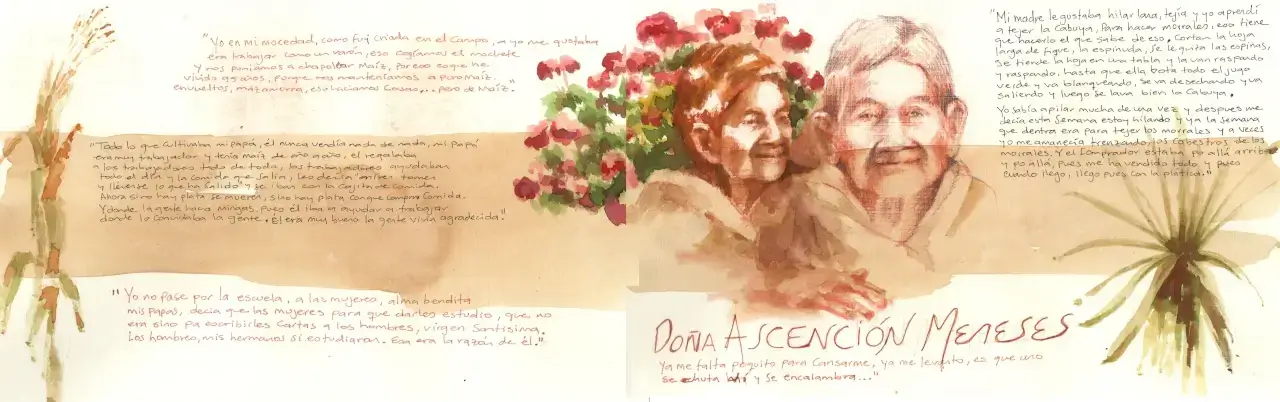 "Yo en mi mocedad, como fuí criada en el Campo, a yo me gustaba
era trabajar como un varón, eso cogíamos el machete
Y nos poníamos a chapolear Maíz, por eso es que he
vivido as años, porque nos manteníamos a puro Maíz.
envueltos, mazamorra, eso hacíamos Cosas... pero de Maíz."
"Todo lo que Cultivaba mi papá, él nunca vendía nada de nada, mi Papá
era muy trabajador y tenía maíz de año a año, el regalaba
a los trabajadores de toda, los trabajadores ayudaban
todo el día y la comida que salía, les decía arrien tomen
y llévense lo que ha salido y se iban con la Cajita de Comida.
Ahora si no hay plata se mueren, si no hay plata con que compra Comida.
Y donde la gente hacía Mingas, pues él iba a ayudar a trabajar
donde lo Convidaba la gente. Él era muy bueno la gente vivía agradecida."
"Yo no pase por la escuela, a las mujeres, alma bendita
mis papás, decía que las mujeres para que darles estudio, que no
era sino pa escribirles Cartas a los hombres, virgen Santísima.
Los hombres, mis hermanos sí estudiaron. Esa era la razón de él."
"Mi madre le gustaba hilar lana, tejía y yo aprendí
a tejer la Cabuya, Para hacer morales, eso tiene
que hacerlo el que sabe de eso. Cortan la hoja
larga de fique, la espinuda, se le quita las espinas,
se tiende la hoja en una tabla y la van raspando
y raspando, hasta que ella bota todo el jugo
verde y va blanqueando, se va desechando y va
saliendo y luego se lava bien la Cabuya.
Yo sabía apilar mucha de una vez y despues me
decía esta Semana estoy hilando y ya la semana
que dentra era para tejer los morrales y a veces
yo me amanecía trenzando, los Cabestros de los
morrales. Y el Comprador estaba po allá arriba
y po allá, pues me ha vendido todo y pues
cuando llego, llego pues con la platica."
DOÑA ASCENCIÓN MENESES
Ya me falta poquito para Cansarme, ya me levanto, es que uno
se chuta ahí y se encalambra..."